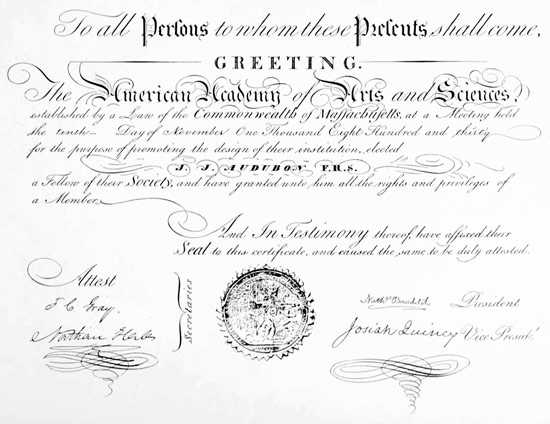 To all Persons to whom these Presents shall come,
GREETING.
The American Academy of Arts and Sciences,
established by a Law of the Commonwealth of Massachusetts, at a Meeting held
the tenth Day of November One Thousand Eight Hundred and thirty
for the purpose of promoting the design of their institution, elected
J. J. AUDUBON F.R.S.
a Fellow of their Society, and have granted unto him all the rights and privileges of
a Member.
And In Testimony thereof, have affixed their
Seal to this certificate, and caused the same to be duly attested.
Attest
F. C. Gray.
Nathan
Secretaries
Nath.l Bowditch President
Josiah Quincy Vice Presid.t